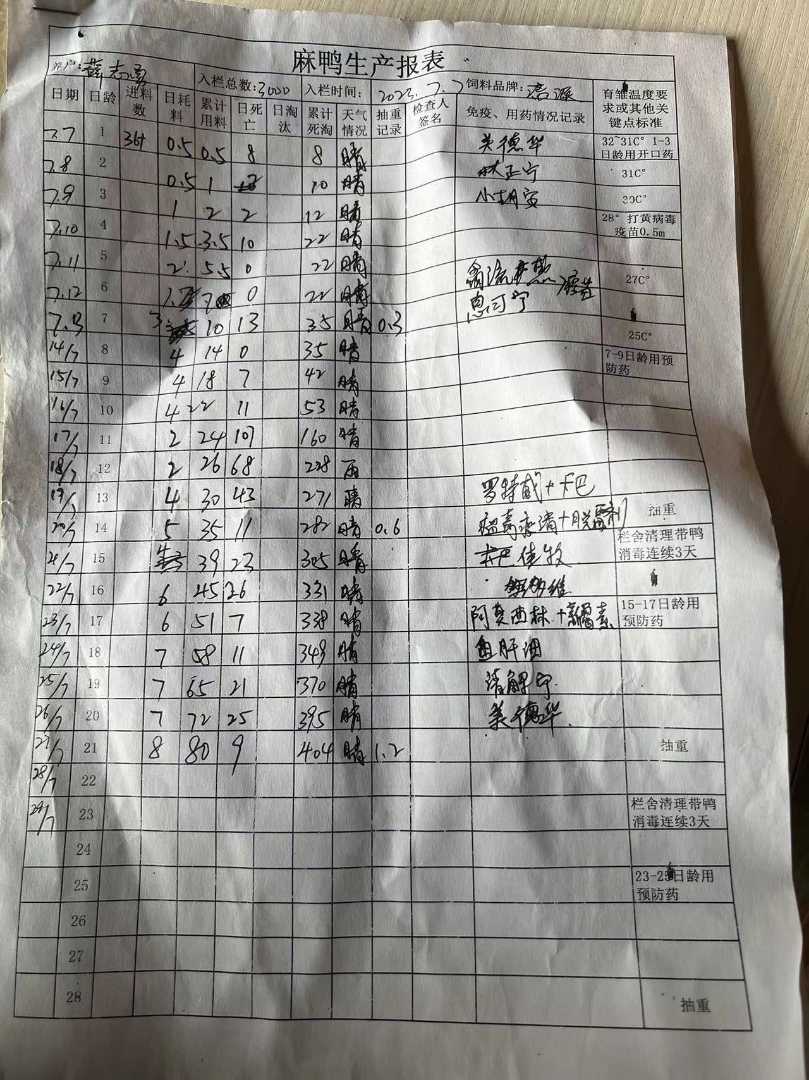 麻鸭生产报表
入栏总数:3000 入栏时间: 2023.7.7 饲料品牌:
日期 日龄 进料数 日耗料 累计用料 日死亡 日淘汰 累计死淘 天气情况 抽重记录 检查人签名 免疫、用药情况记录 育雏温度要求或其他关键点标准
7.7 1 364 0.5 0.5 8 8 晴 美德华 32~31C° 1-3日龄用开口药
7.8 2 0.5 1 2 10 晴 林正宁 31C°
7.9 3 1 2 2 12 晴 30C°
7.10 4 1.5 3.5 10 22 晴 28° 打黄病毒疫苗0.5m
7.11 5 2 5.5 0 22 晴 27C°
7.12 6 0 22 晴
7.13 7 10 13 35 晴 0.3 25C°
14/7 8 4 14 0 35 晴 7-9日龄用预防药
15/7 9 4 18 7 42 晴
16/7 10 4 22 11 53 晴
17/7 11 2 24 107 160 晴
18/7 12 2 26 68 228 雨
19/7 13 4 30 43 271 晴 罗特威+卡巴 抽重
20/7 14 5 35 11 282 晴 0.6 栏舍清理带鸭消毒连续3天
21/7 15 39 23 305 晴 佳牧
22/7 16 6 45 26 331 晴
23/7 17 6 51 7 338 晴 阿莫西林+新霉素 15-17日龄用预防药
24/7 18 7 58 11 349 晴 鱼肝油
25/7 19 7 65 21 370 晴 清解宁
26/7 20 7 72 25 395 晴 美德华
27/7 21 8 80 9 404 晴 1.2 抽重
28/7 22
29/7 23 栏舍清理带鸭消毒连续3天
24
25 23-25日龄用预防药
26
27
28 抽重